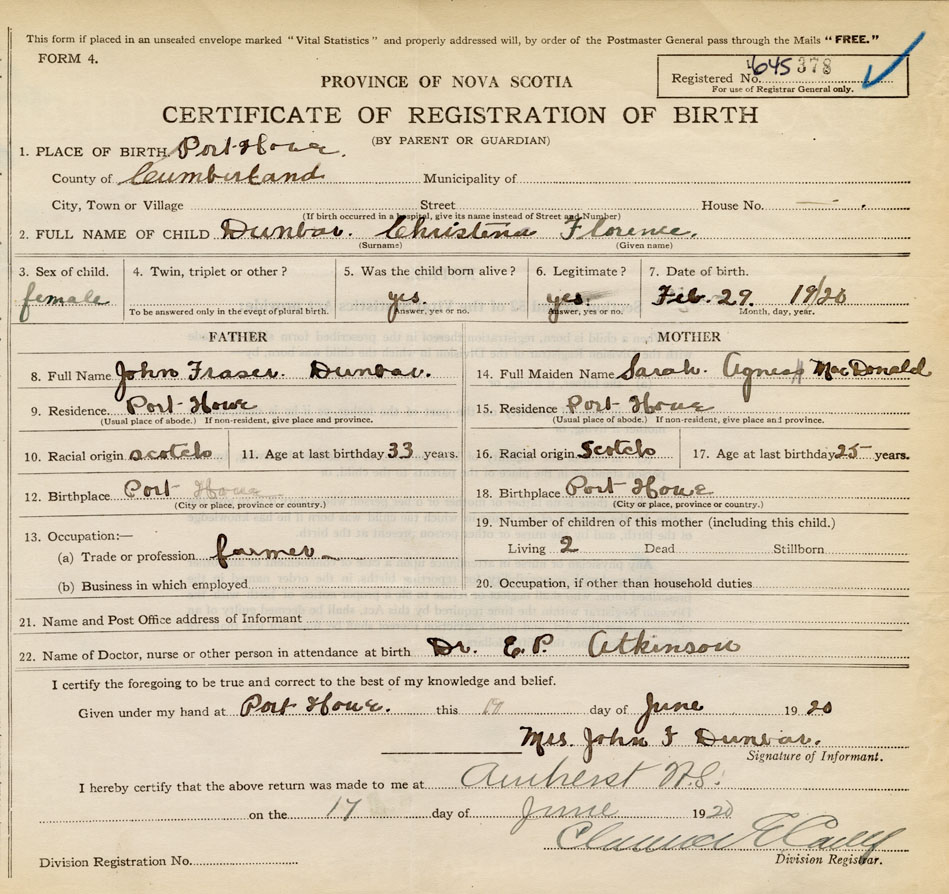 This form if placed in an unsealed envelope marked "Vital Statistics" and properly addressed will, by order of the Postmaster General pass through the Mails "FREE."
FORM 4.
645 378
Registered No.
For use of Registrar General only.
PROVINCE OF NOVA SCOTIA
CERTIFICATE OF REGISTRATION OF BIRTH
(BY PARENT OR GUARDIAN)
1. PLACE OF BIRTH Port Howe.
County of Cumberland Municipality of
City, Town or Village Street House No. —
(If birth occurred in a hospital, give its name instead of Street and Number)
2. FULL NAME OF CHILD Dunbar. Christena Florence.
(Surname) (Given name)
3. Sex of child. 4. Twin, triplet or other? 5. Was the child born alive? 6. Legitimate? 7. Date of birth.
female yes. yes. Feb. 29. 1920
To be answered only in the event of plural birth. Answer, yes or no. Answer, yes or no. Month, day, year.
FATHER MOTHER
8. Full Name John Fraser. Dunbar. 14. Full Maiden Name Sarah. Agnes MacDonald
9. Residence Port Howe 15. Residence Port Howe
(Usual place of abode.) If non-resident, give place and province. (Usual place of abode.) If non-resident, give place and province.
10. Racial origin scotch 11. Age at last birthday 33 years. 16. Racial origin Scotch 17. Age at last birthday 25 years.
12. Birthplace Port Howe 18. Birthplace Port Howe
(City or place, province or country.) (City or place, province or country.)
13. Occupation:— 19. Number of children of this mother (including this child.)
(a) Trade or profession farmer Living 2 Dead Stillborn
(b) Business in which employed 20. Occupation, if other than household duties
21. Name and Post Office address of Informant
22. Name of Doctor, nurse or other person in attendance at birth Dr. E.P. Atkinson
I certify the foregoing to be true and correct to the best of my knowledge and belief.
Given under my hand at Port Howe. this 17 day of June 1920
Mrs. John F Dunbar.
Signature of Informant.
I hereby certify that the above return was made to me at Amherst N.S.
on the 17 day of June 1920
Division Registration No. Division Registrar.